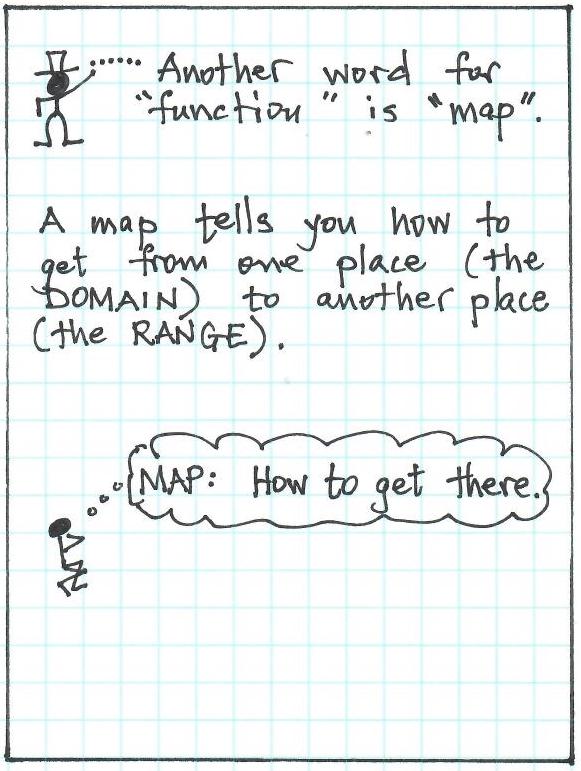 Another word for
"function" is "map".
A map tells you how to
get from one place (the
DOMAIN) to another place
(the RANGE).
MAP: How to get there.